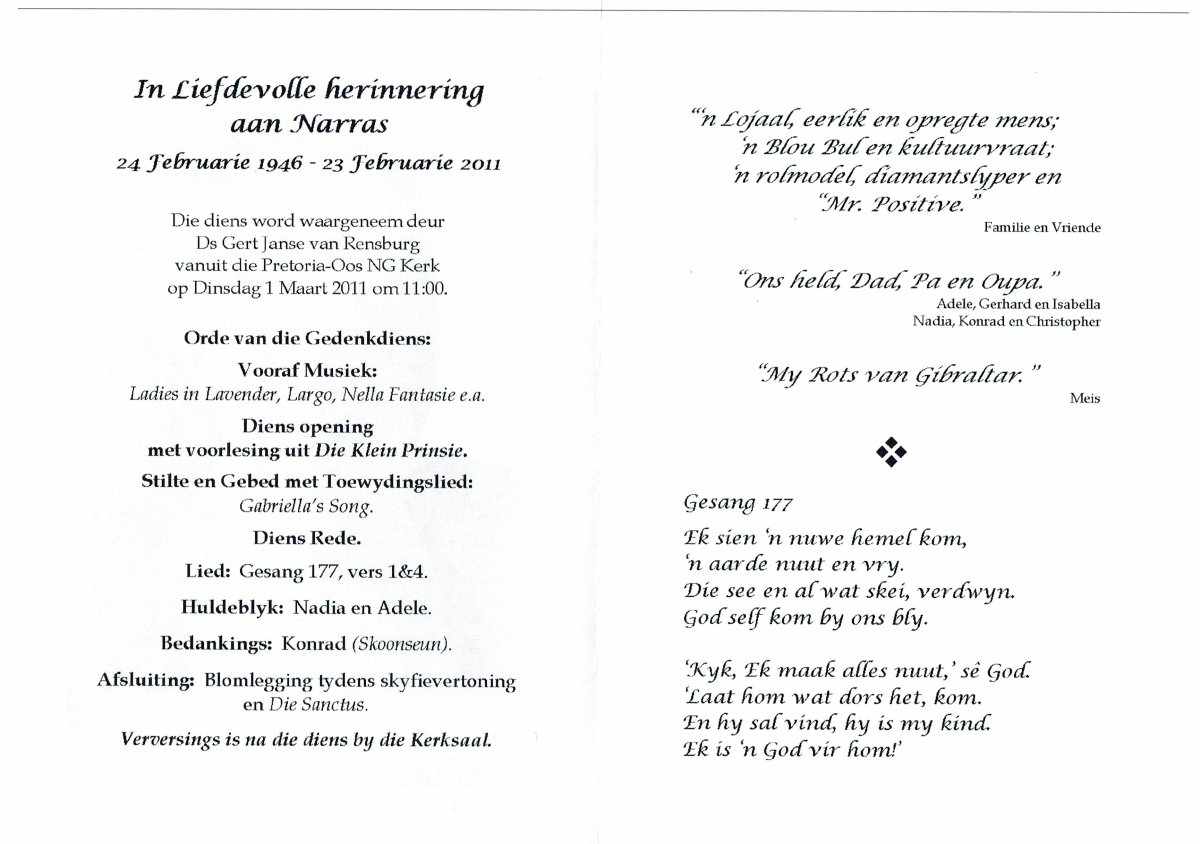 In Liefdevolle herinnering
aan Narras
24 Februarie 1946 - 23 Februarie 2011
Die diens word waargeneem deur
Ds Gert Janse van Rensburg
vanuit die Pretoria-Oos NG Kerk
op Dinsdag 1 Maart 2011 om 11:00.
Orde van die Gedenkdiens:
Vooraf Musiek:
Ladies in Lavender, Largo, Nella Fantasie e.a.
Diens opening
met voorlesing uit Die Klein Prinsie.
Stilte en Gebed met Toewydingslied:
Gabriella's Song.
Diens Rede.
Lied: Gesang 177, vers 1&4.
Huldeblyk: Nadia en Adele.
Bedankings: Konrad (Skoonseun).
Afsluiting: Blomlegging tydens skyfievertoning
en Die Sanctus.
Verversings is na die diens by die Kerksaal.
“‘n Lojaal, eerlik en opregte mens;
‘n Blou Bul en kultuurvraat;
‘n rolmodel, diamantslyper en
“Mr. Positive.”
Familie en Vriende
“Ons held, Dad, Pa en Oupa.”
Adele, Gerhard en Isabella
Nadia, Konrad en Christopher
“My Rots van Gibraltar.”
Meis
Gesang 177
Ek sien ‘n nuwe hemel kom,
‘n aarde nuut en vry.
Die see en al wat skei, verdwyn.
God self kom by ons bly.
‘Kyk, Ek maak alles nuut,’ sê God.
‘Laat hom wat dors het, kom.
En hy sal vind, hy is my kind.
Ek is ‘n God vir hom!’